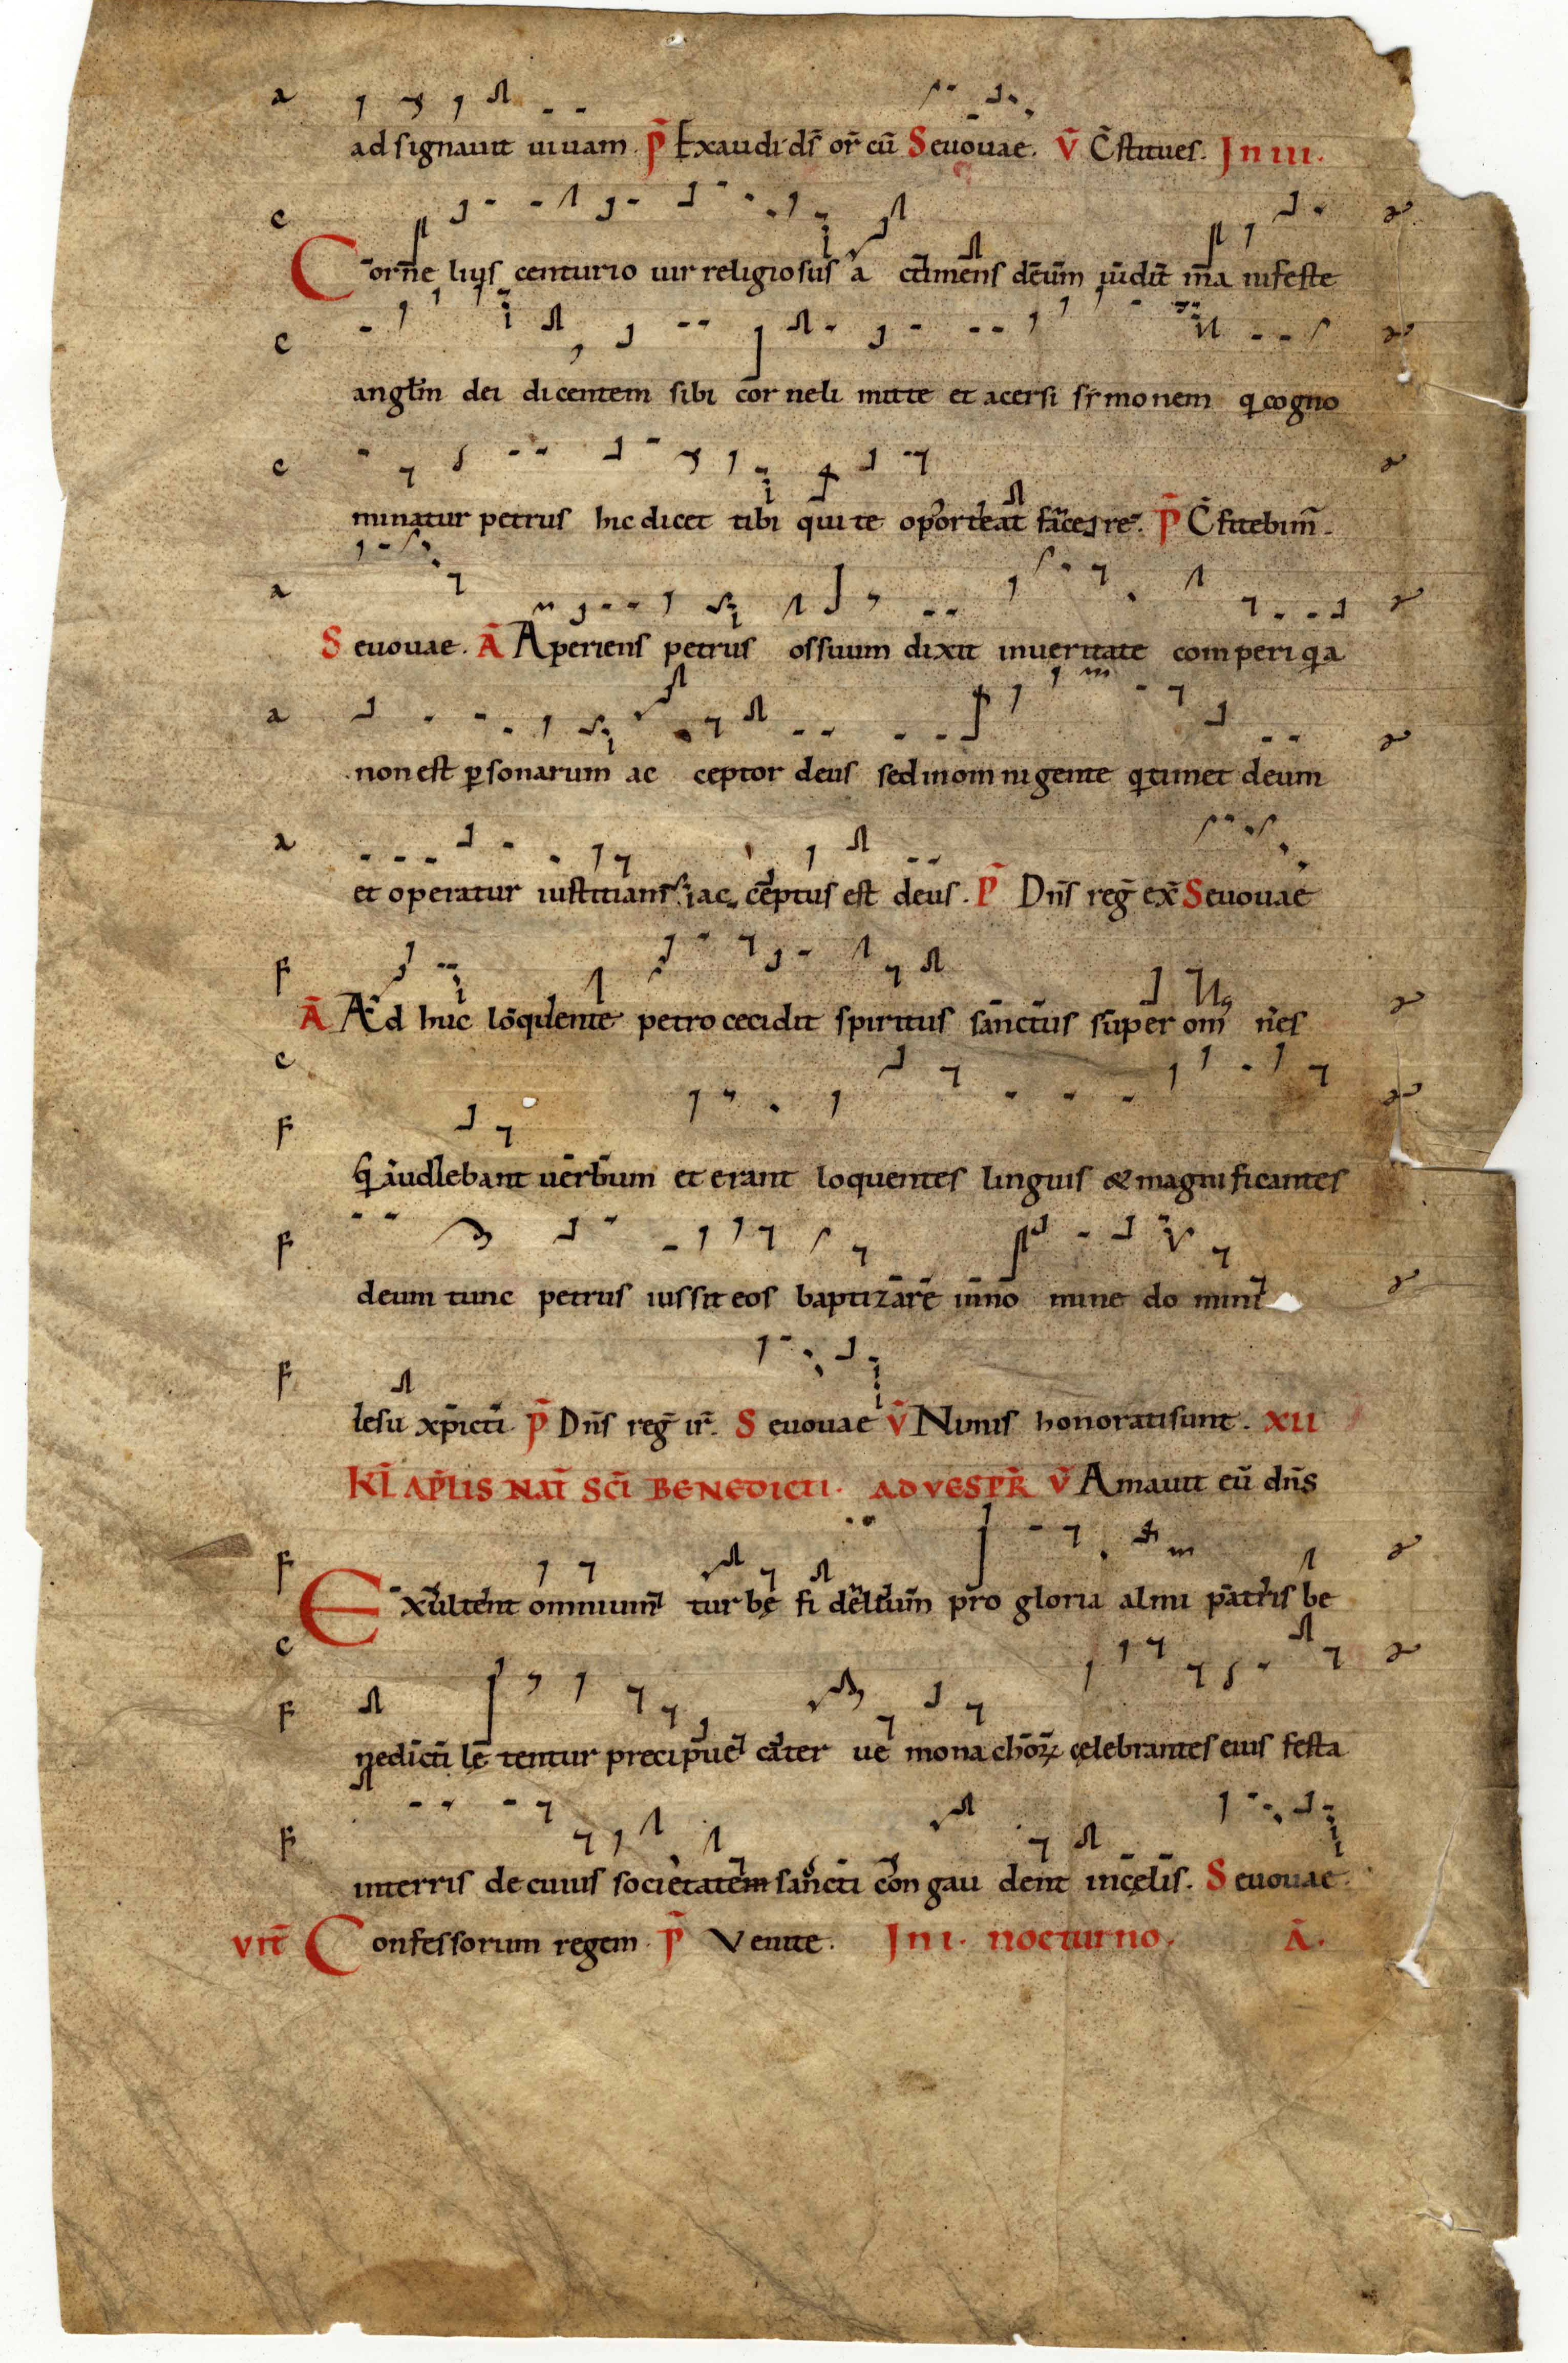 a
adsignauit uiuam. P̄ Exaudi ds̄ or̄ cū Seuouae. V̄ C̄stitues. In III.
c
Cornelius centurio uir religiosus ac timens deum uidit manifeste
c
anglm̄ dei dicentem sibi corneli mitte et acersi sȳmonem q cogno
c
minatur petrus hic dicet tibi qui te oporteat facere. P̄ C̄fitebim̄.
a
Seuouae. Ā Aperiens petrus os suum dixit in ueritate comperi qa
a
non est psonarum acceptor deus sed in omni gente q timet deum
a
et operatur iustitiam ac ceptus est deus. P̄ Dn̄s reḡ ex̄ Seuouae
F
Ā Ad huc loquente petro cecidit spiritus sanctus super om nes
c
F
q audiebant uerbum et erant loquentes linguis & magnificantes
F
deum tunc petrus iussit eos baptizare in no mine do mini
F
Iesu xp̄icti P̄ Dn̄s reḡ ir̄. Seuouae V̄ Nimis honorati sunt. XII
KL̄ AP̄LIS NAT̄ SC̄I BENEDICTI. AD VESPR̄ V̄ Amauit eū dn̄s
F
Exultent omnium turbę fi delium pro gloria almi patris be
c
F
nedicti lę tentur precipue cater uę monachoꝝ cęlebrantes eius festa
F
in terris de cuius societatem sancti con gau dent in cęlis. Seuouae.
VIT̄ Confessorum regem P̄ Venite. In I. nocturno. Ā.